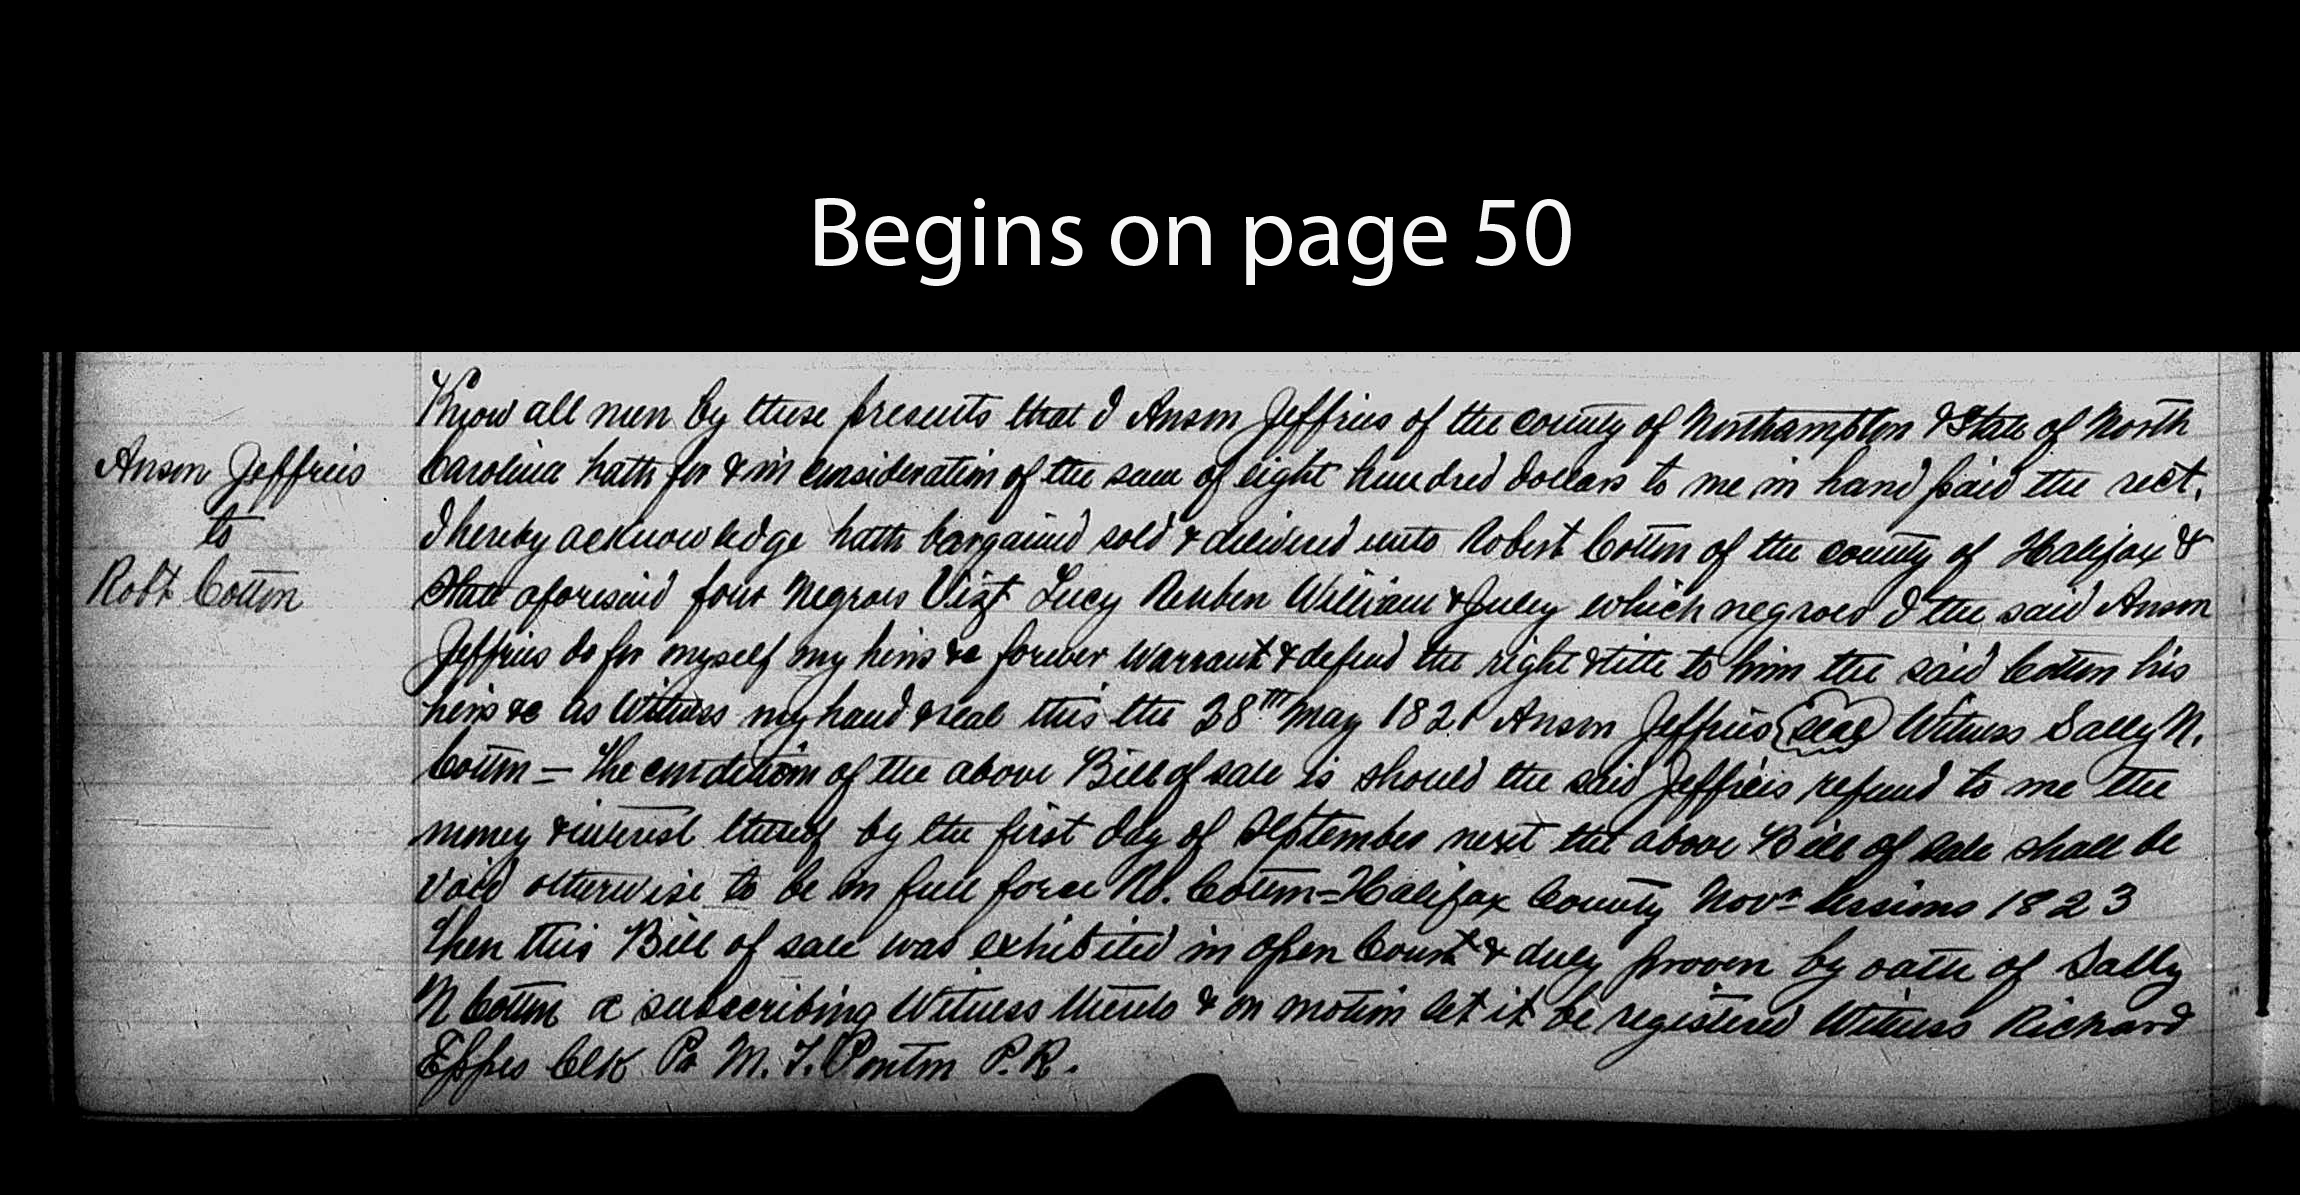 Begins on page 50
Know all men by these presents that I Anson Jeffries of the county of Northampton & State of North
Anson Jeffries
to
Robt Cotten
Carolina hath for & in consideration of the sum of eight hundred dollars to me in hand paid the rect.
I hereby acknowledge hath bargained sold & delivered unto Robert Cotten of the county of Halifax &
State aforesaid four Negroes Vizt Lucy Reuben William & July which negroes I the said Anson
Jeffries do for myself my heirs &c forever warrant & defend the right & title to him the said Cotten his
heirs &c As Witness my hand & seal this the 28th May 1821 Anson Jeffries seal Witness Sally N.
Cotten – The condition of the above Bill of sale is should the said Jeffries refund to me the
money & interest thereof by the first day of September next the above Bill of sale shall be
Void otherwise to be in full force Ro. Cotten = Halifax County Novr Sessions 1823
Then this Bill of sale was exhibited in open Court & duly proven by oath of Sally
N Cotten a subscribing Witness thereto & on motion let it be registered Witness Richard
Eppes Clk Pr M. T. Ponton P.R.